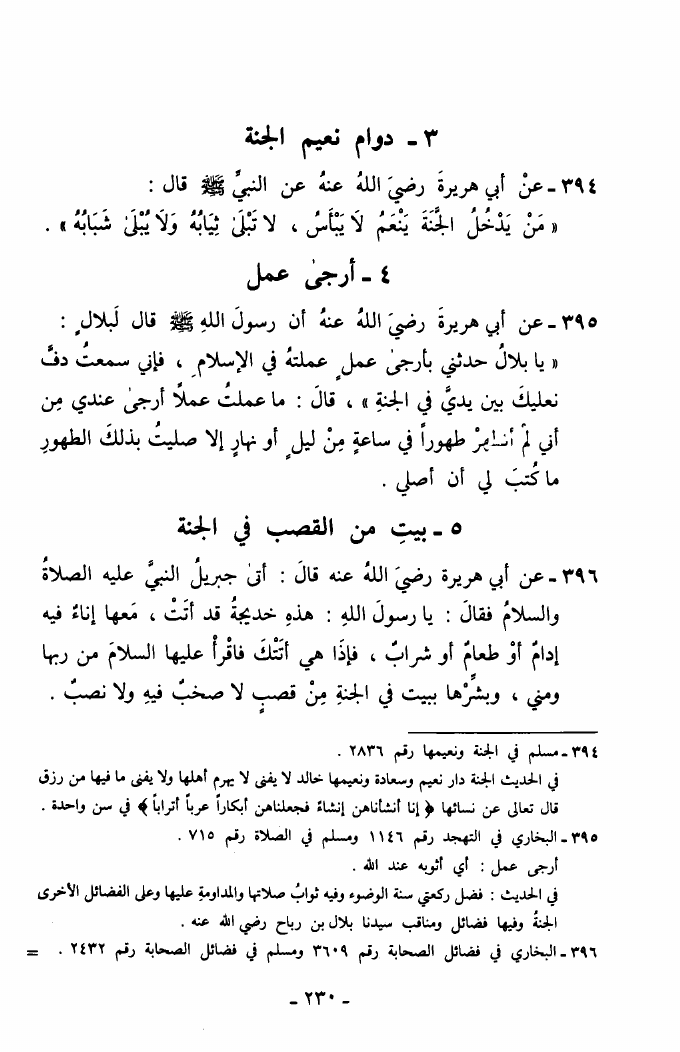 ٣ ـ دوام نعيم الجنة
٣٩٤ ـ عنْ أبي هريرةَ رضيَ اللهُ عنهُ عن النبيِّ ﷺ قال :
« مَنْ يَدْخُلُ الجَنَّةَ يَنْعَمُ لاَ يَبْأَسُ ، لا تَبْلَىٰ ثِيَابُهُ وَلاَ يُبْلَىٰ شَبَابُهُ » .
٤ ـ أرجىٰ عمل
٣٩٥ ـ عن أبي هريرةَ رضيَ اللهُ عنهُ أن رسولَ اللهِ ﷺ قال لَبلالٍ :
« يا بلالُ حدثني بأرجىٰ عملٍ عملتهُ في الإسلامِ ، فإني سمعتُ دفَّ
نعليكَ بين يديَّ في الجنةِ » ، قالَ : ما عملتُ عملًا أرجىٰ عندي مِن
أني لمْ أتـامرْ طهوراً في ساعةٍ مِنْ ليلٍ أو نهارٍ إلا صليتُ بذلكَ الطهورِ
ما كُتبَ لي أن أصلي .
٥ ـ بيتِ من القصب في الجنة
٣٩٦ ـ عن أبي هريرة رضيَ اللهُ عنه قالَ : أتىٰ جبريلُ النبيَّ عليه الصلاةُ
والسلامُ فقالَ : يا رسولَ اللهِ : هذهِ خديجةُ قد أتَتْ ، مَعها إناءٌ فيه
إدامٌ أوْ طعامٌ أو شرابٌ ، فإذَا هي أتَتْكَ فاقْرأْ عليها السلامَ من ربها
ومني ، وبشِّرْها ببيت في الجنةِ مِنْ قصبٍ لا صخبٌ فيهِ ولا نصبٌ .
٣٩٤ ـ مسلم في الجنة ونعيمها رقم ٢٨٣٦ .
في الحديث الجنة دار نعيم وسعادة ونعيمها خالد لا يفنى لا يهرم أهلها ولا يفنى ما فيها من رزق
قال تعالى عن نسائها ﴿ إنا أنشأناهن إنشاءً فجعلناهن أبكاراً عرباً أتراباً ﴾ في سن واحدة .
٣٩٥ ـ البخاري في التهجد رقم ١١٤٦ ومسلم في الصلاة رقم ٧١٥ .
أرجى عمل : أي أثوبه عند الله .
في الحديث : فضل ركعتي سنة الوضوء وفيه ثوابُ صلاتها والمداومةِ عليها وعلى الفضائل الأخرى
الجنةُ وفيها فضائل ومناقب سيدنا بلال بن رباح رضي الله عنه .
٣٩٦ ـ البخاري في فضائل الصحابة رقم ٣٦٠٩ ومسلم في فضائل الصحابة رقم ٢٤٣٢ . =
ـ ٢٣٠ ـ